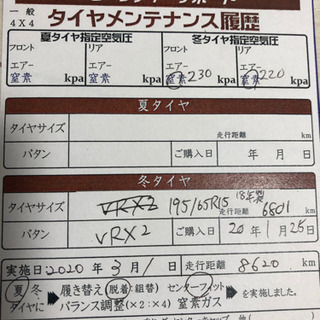 一般
4X4
タイヤメンテナンス履歴
夏タイヤ指定空気圧 冬タイヤ指定空気圧
フロント リア フロント リア
エアー エアー エアー エアー
窒素 kpa 窒素 kpa 窒素 230 kpa 窒素 220 kpa
夏タイヤ
タイヤサイズ 走行距離 km
パタン ご購入日 年 月 日
冬タイヤ
18年製
タイヤサイズ VRX2 195/65R15 走行距離 6801 km
パタン VRX2 ご購入日 20年 1月 25日
実施日 2020年 3月 1日 走行距離 8620 km
夏 冬 履き替え(脱着・組替) センターフィット
タイヤに バランス調整(×2:×4) 窒素ガス を実施しました。